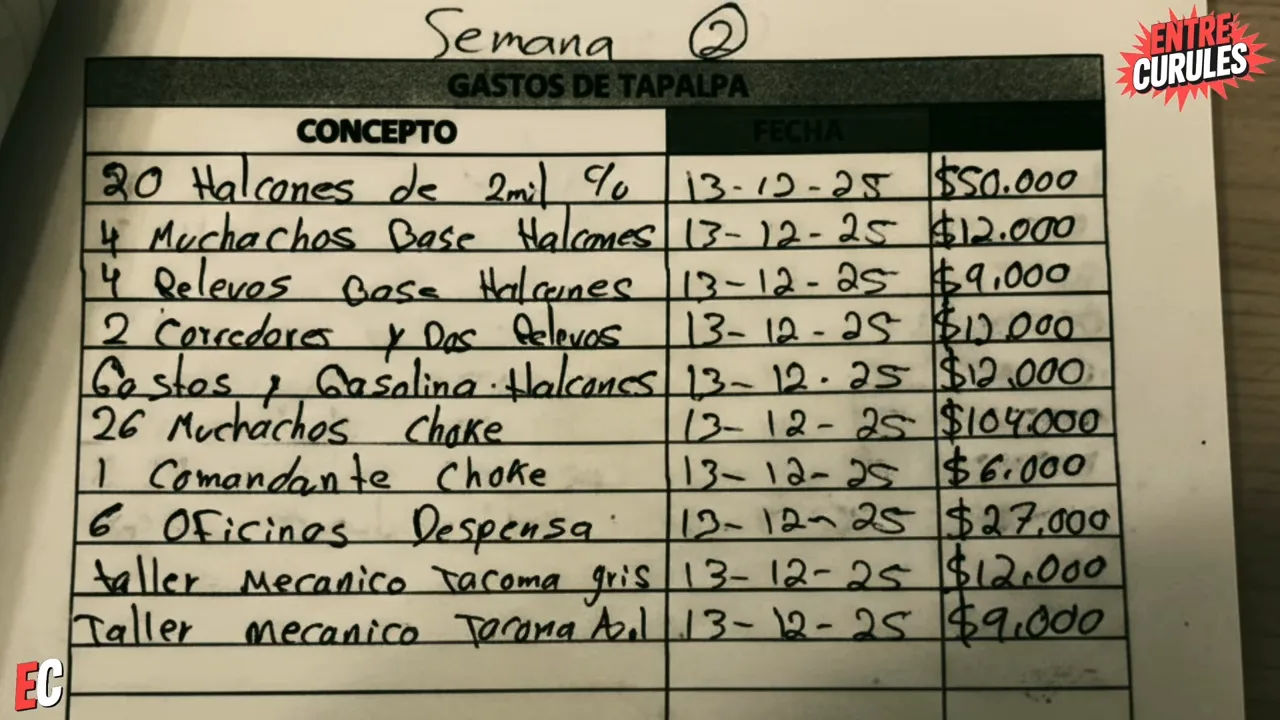 Semana 2
ENTRE CURULES
GASTOS DE TAPALPA
CONCEPTO FECHA
20 Halcones de 2mil % 13-12-25 $50.000
4 Muchachos Base Halcones 13-12-25 $12.000
4 Relevos Base Halcones 13-12-25 $9,000
2 Corredores y Dos Relevos 13-12-25 $12.000
Gastos y Gasolina. Halcones 13-12.25 $12,000
26 Muchachos Choke 13-12-25 $104.000
1 Comandante Choke 13-12-25 $6.000
6 Oficinas Despensa 13-12-25 $27,000
taller Mecanico Tacoma gris 13-12-25 $12,000
Taller mecanico Tacoma Azul 13-12-25 $9,000
EC